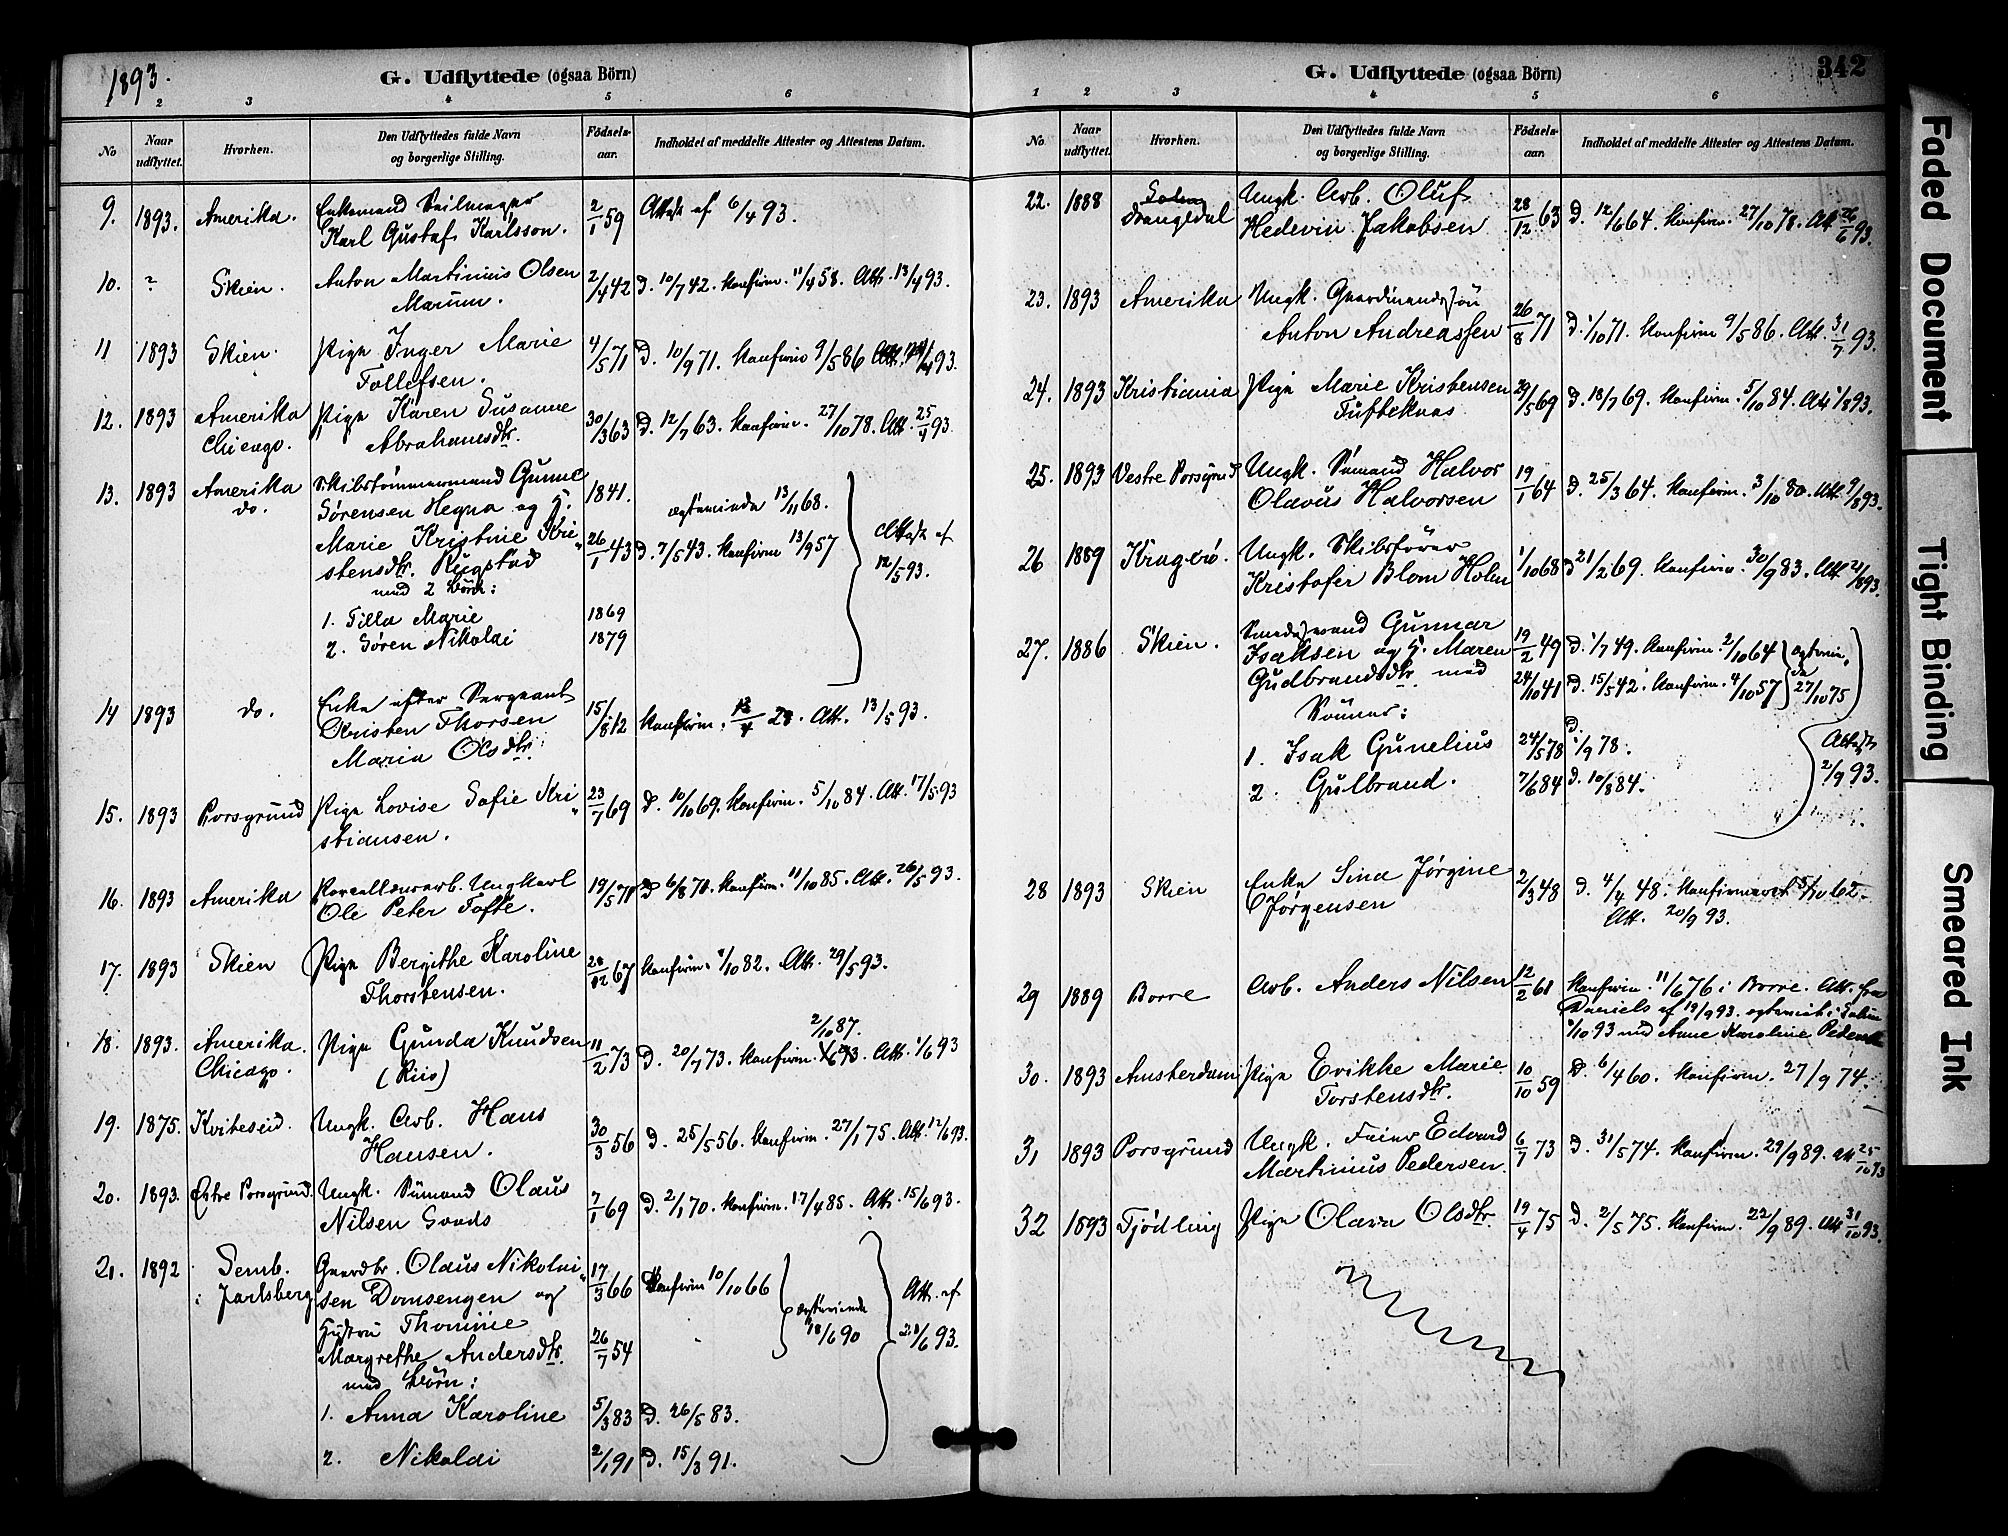 1893.
G. Udflyttede (ogsaa Börn)
1 2 3 4 5 6
No
Naar udflyttet.
Hvorhen.
Den Udflyttedes fulde Navn og borgerlige Stilling.
Födsels-aar.
Indholdet af meddelte Attester og Attestens Datum.
9. 1893. Amerika. Enkemand Seilmager 2/1 59 Attest af 6/4 93.
Karl Gustaf Karlsson.
10. ? Skien. Anton Martinius Olsen 2/4 42 D. 10/7 42. Konfirm. 11/4 58. Att. 13/4 93.
Marum.
11 1893 Skien. Pige Inger Marie 4/5 71 D. 10/9 71. Konfirm 9/5 86 Att. 93.
Tollefsen.
12. 1893 Amerika Pige Karen Susanne 30/3 63 D. 12/7 63. Konfirm. 27/10 78. Att. 25/4 93.
Chicago. Abrahamsdtr.
13. 1893 Amerika Skibstömmermand Gunne 1841.
do. Sørensen Hegna og H. ægteviede 13/11 68.
Marie Kristine Kri- 26/1 43 D. 7/5 43. Konfirm 13/9 57 Attest af
stensdtr. Rugstad 12/5 93.
med 2 Börn:
1. Tilla Marie 1869
2. Søren Nikolai 1879
14 1893 do. Enke efter Sergeant 15/8 12 Konfirm. 28. Att. 13/5 93.
Kristen Thorsen
Maria Olsdtr.
15. 1893 Porsgrund Pige Lovise Sofie Kri- 23/7 69 D. 10/10 69. Konfirm. 5/10 84. Att. 17/5 93
stiansen.
16. 1893 Amerika Porcellænsarb. Ungkarl 19/5 71 D 6/8 71. Konfirm. 11/10 85. Att. 26/5 93.
Ole Peter Tofte.
17. 1893 Skien Pige Bergithe Karoline 28/12 67 Konfirm. 1/10 82. Att. 29/5 93.
Thorstensen.
18. 1893. Amerika. Pige Gunda Knudsen 11/2 73 D. 20/7 73. Konfirm. 2/10 87. Att. 1/6 93
Chicago. (Riis)
19. 1875. Kviteseid. Ungk. Arb. Hans 30/3 56 D. 25/5 56. Konfirm. 27/1 75. Att. 12/6 93.
Hansen.
20. 1893. Østre Porsgrund. Ungk. Sömand Olaus 7/1 69 D. 2/1 70. Konfirm. 17/4 85. Att. 15/6 93.
Nilsen Sands
21. 1892 Semb. Gaardbr. Olaus Nikolai- 17/3 66 Konfirm 10/10 66
i Jarlsberg sen Domsengen og ægteviede Att. af
Hustru Thomine 18/6 90 21/6 93.
Margrethe Andersdtr. 26/7 54
med Börn:
1. Anna Karoline 5/3 83 D. 26/5 83.
2. Nikolai 2/1 91 D. 15/3 91.
342
G. Udflyttede (ogsaa Börn)
1 2 3 4 5 6
No.
Naar udflyttet.
Hvorhen.
Den Udflyttedes fulde Navn og borgerlige Stilling.
Födsels-aar.
Indholdet af meddelte Attester og Attestens Datum.
22. 1888 Drangedal Ungk. Arb. Oluf 28/12 63 D. 12/6 64. Konfirm. 27/10 78. Att 26/6 93.
Hedevin Jakobsen
23. 1893 Amerika Ungk. Gaardmandssön 26/8 71 D. 1/10 71. Konfirm 9/5 86. Att. 31/7 93.
Anton Andreassen
24. 1893 Kristiania Pige Marie Kristensen 29/5 69 D. 18/7 69. Konfirm. 5/10 84. Att 1/8 93.
Tufteknas
25. 1893 Vestre Porsgrund Ungk. Sömand Halvor 19/1 64 D. 25/3 64. Konfirm. 3/10 80. Att. 9/8 93.
Olavus Halvorsen
26 1889 Kragerö. Ungk. Skibsförer 1/10 68 D 21/2 69. Konfirm. 30/9 83. Att. 21/8 93.
Kristofer Blom Holm
27. 1886 Skien. Gunnar 19/2 49 D. 1/7 49. Konfirm. 2/10 64
Isaksen og H. Maren 27/10 75
Gudbrandsdtr. med 24/10 41 D. 15/5 42. Konfirm. 4/10 57
Sönner:
1. Isak Gunelius 24/5 78 D. 1/9 78. Attest
2. Gulbrand. 7/6 84 D. 10/8 84. 2/9 93.
28 1893 Skien Enke Sina Jørgine 2/3 48 D. 4/4 48. Konfirmeret 5/10 62.
Jørgensen Att. 20/9 93.
29 1889 Borre Arb. Anders Nilsen 12/2 61 Konfirm. 11/6 76 i Borre. Att. fra
af 19/9 93.
1/10 93 med Anne Karoline
30. 1893 Amsterdam Pige Evikke Marie 10/10 59 D. 6/4 60. Konfirm. 27/9 74.
Torstensdtr.
31 1893 Porsgrund Ungk. Edvard 6/7 73 D. 31/5 74. Konfirm. 29/9 89. Att 25/10 93
Martinius Pedersen.
32 1893 Tjödling Pige Olava Olsdtr. 19/4 75 D. 2/5 75. Konfirm. 22/9 89. Att 31/10 93.
Faded Document
Tight Binding
Smeared Ink